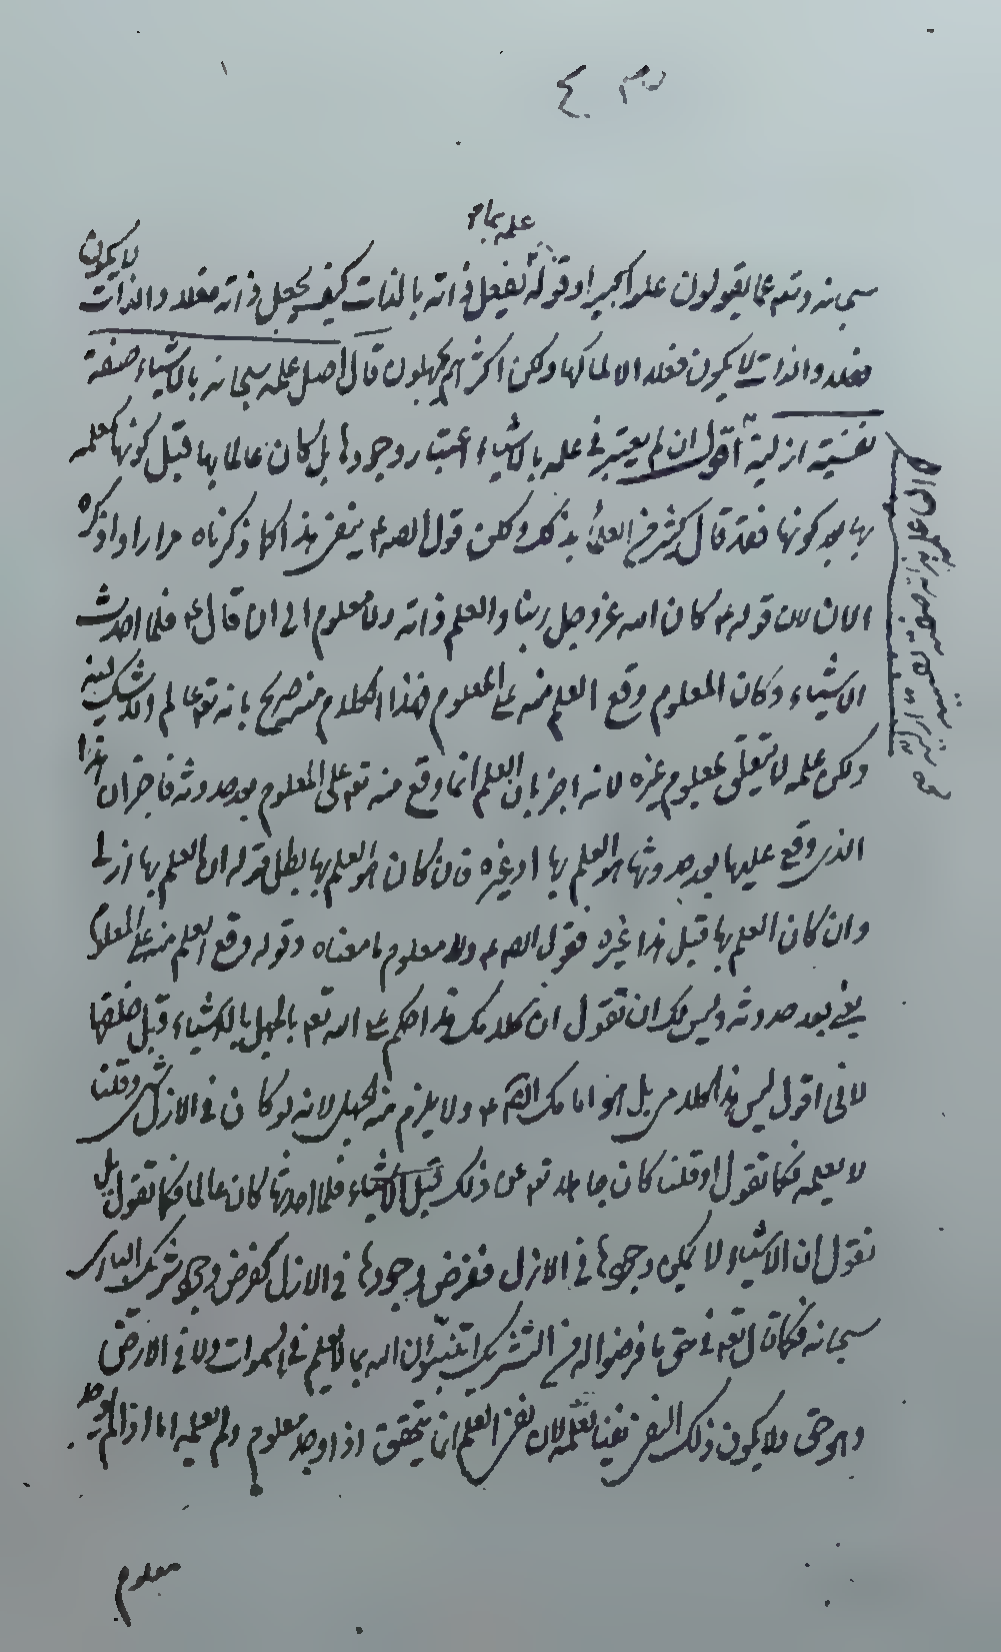 علمه بما
سبحانه وتعالى عما يقولون علوا كبيرا وقوله يفعل ذاته بالذات كيف يجعل ذاته فعلا والذات لا يكون
فعلا والذات لا يكون فعلا الا لمالكها ولكن اكثرهم يجهلون قال اصل علمه سبحانه بالاشياء صفة
نفسية ازلية اقول ان لم يعتبر في علمه بالاشياء اعتبار وجودها بل كان عالما بها قبل كونها كعلمه
بها بعد كونها فقد قال كثير من العلماء بذلك ولكن قول الصه ع ينفى هذا كما ذكرناه مرارا واذكره
الان لان قوله ع كان الله عز وجل ربنا والعلم ذاته ولا معلوم الى ان قال ع فلما احدث
الاشياء وكان المعلوم وقع العلم منه على المعلوم فهذا الكلام منه صريح بانه تع عالم ولا شك فيه
ولكن علمه لا يتعلق بمعلوم غيره لانه اخبر بان العلم انما وقع منه تع على المعلوم بعد حدوثه فاخبر ان هذا
الذى وقع عليها بعد حدوثها هو العلم بها او غيره فان كان هو العلم بها بطل قوله ان العلم بها ازلى
وان كان العلم بها قبل هذا غيره فقول الصه ع ولا معلوم ما معناه وقوله وقع العلم منه على المعلوم
يعنى بعد حدوثه وليس لك ان تقول ان كلامك هذا حكم على الله تع بالجهل بالاشياء قبل خلقها
لانى اقول ليس هذا كلامى بل هو امامك الصه ع ولا يلزم منه الجهل لانه لو كان فى الازل شئ وقلنا
لا يعلمه فكما تقول او قلنا كان جاهلا تع عن ذلك قبل الاشياء فلما احدثها كان عالما فكما تقول بل
نقول ان الاشياء لا يمكن وجودها فى الازل ففرض وجودها فى الازل كفرض وجود شريك البارى
سبحانه فكما قال تع فى حق ما فرضوا له من الشريك اتنبئون الله بما لا يعلم فى السموات ولا فى الارض
وهو حق ولا يكون ذلك النفى نفيا لعلمه لان نفى العلم انما يتحقق اذا وجد معلوم ولم يعلمه اما اذا لم يوجد
معلوم